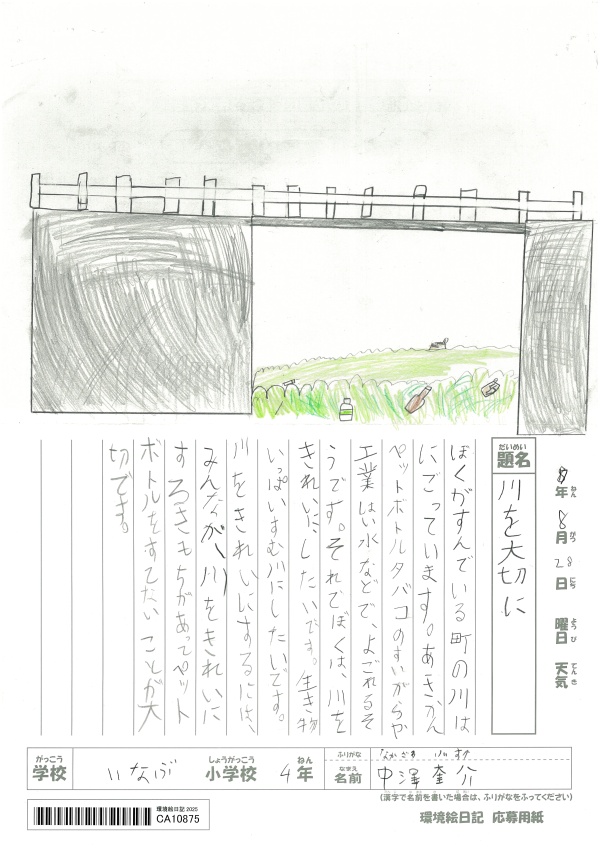 8年 8月 28日 曜日 天気
ねん がつ にち ようび てんき
だいめい
題名
川を大切に
ぼくがすんでいる町の川は
にごっています。あきかん
ペットボトルタバコのすいがらや
工業はい水などで、よごれるそ
うです。それでぼくは、川を
きれいに、したいです。生き物
いっぱいすむ川にしたいです。
川をきれいにするには、
みんなが、川をきれいに
するきもちがあってペット
ボトルをすてないことが大
切です。
がっこう しょうがっこう ねん
学校 いなぶ 小学校 4年
ふりがな
なまえ
名前 中澤奎介
(漢字で名前を書いた場合は、ふりがなをふってください)
環境絵日記 2025
CA10875
環境絵日記 応募用紙